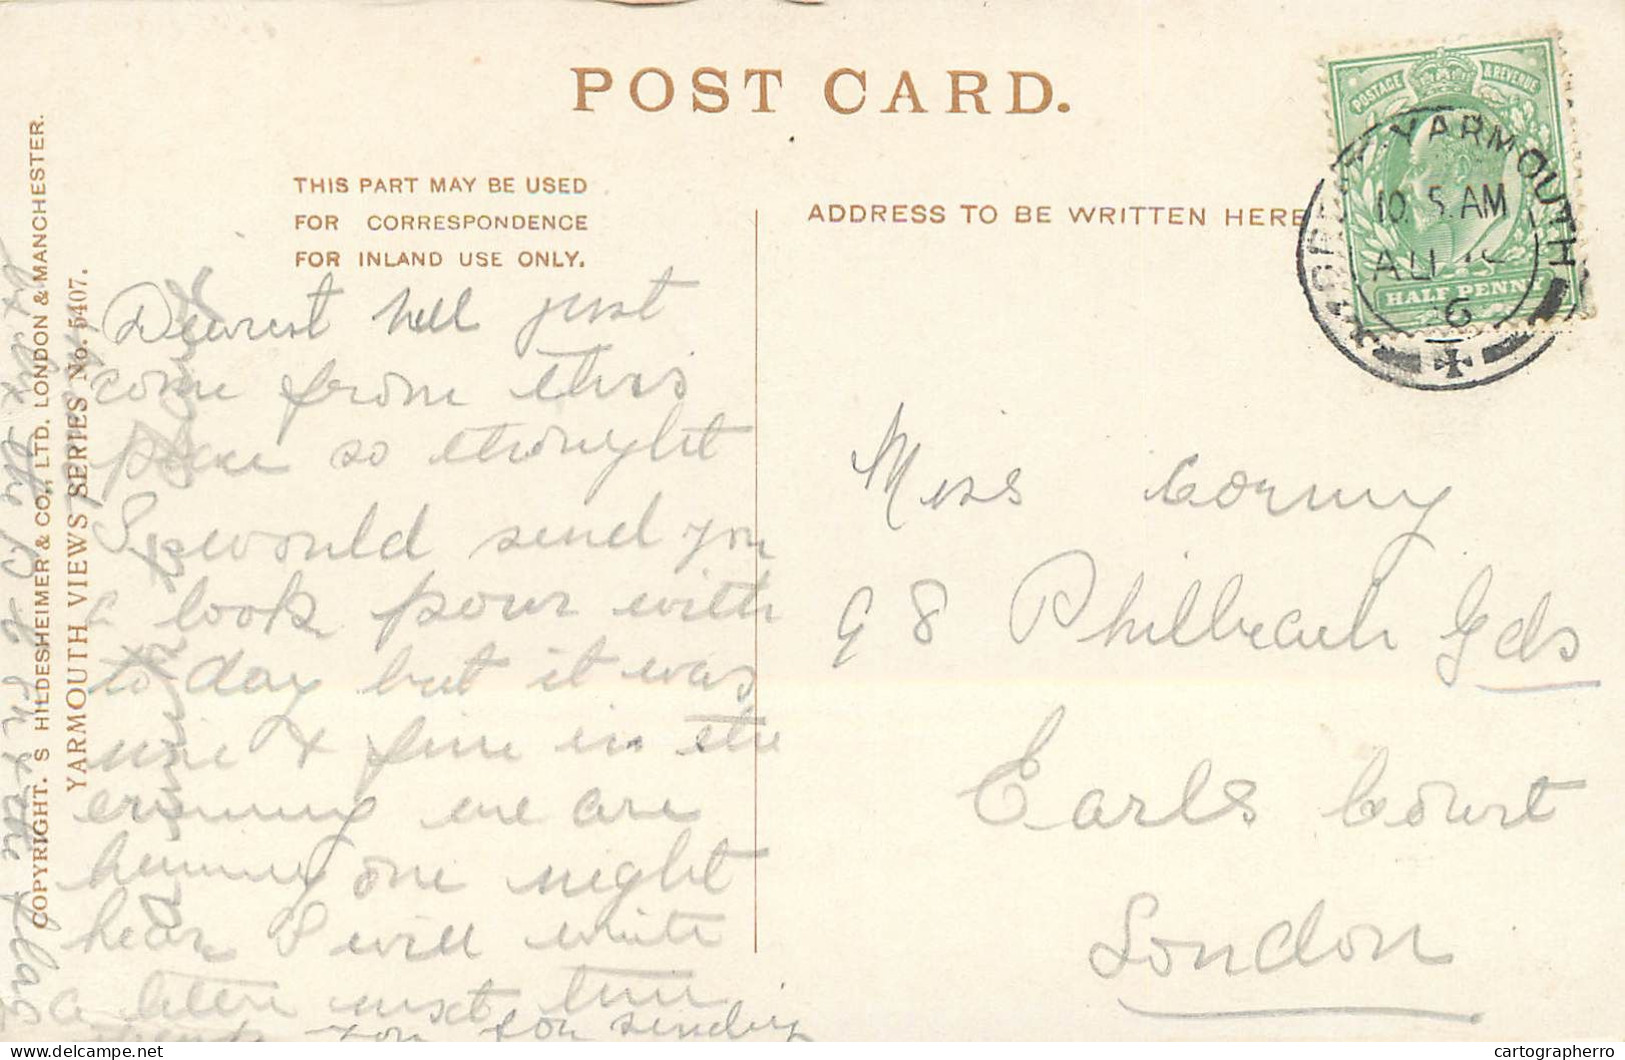 POST CARD.
THIS PART MAY BE USED
FOR CORRESPONDENCE
FOR INLAND USE ONLY.
ADDRESS TO BE WRITTEN HERE
POSTAGE & REVENUE
HALF PENNY
YARMOUTH
10.5.AM
AU
6
COPYRIGHT. S HILDESHEIMER & CO., LTD. LONDON & MANCHESTER.
YARMOUTH VIEWS SERIES No. 5407.
Dearest Nell just
come from this
place so thought
I would send you
a look pour with
to day but it was
nice & fine in the
evening we are
hear I will write
a letter next time
Thank you for sending
Miss
98 Philbeach Gds
Earls Court
London
cartographerro
www.delcampe.net